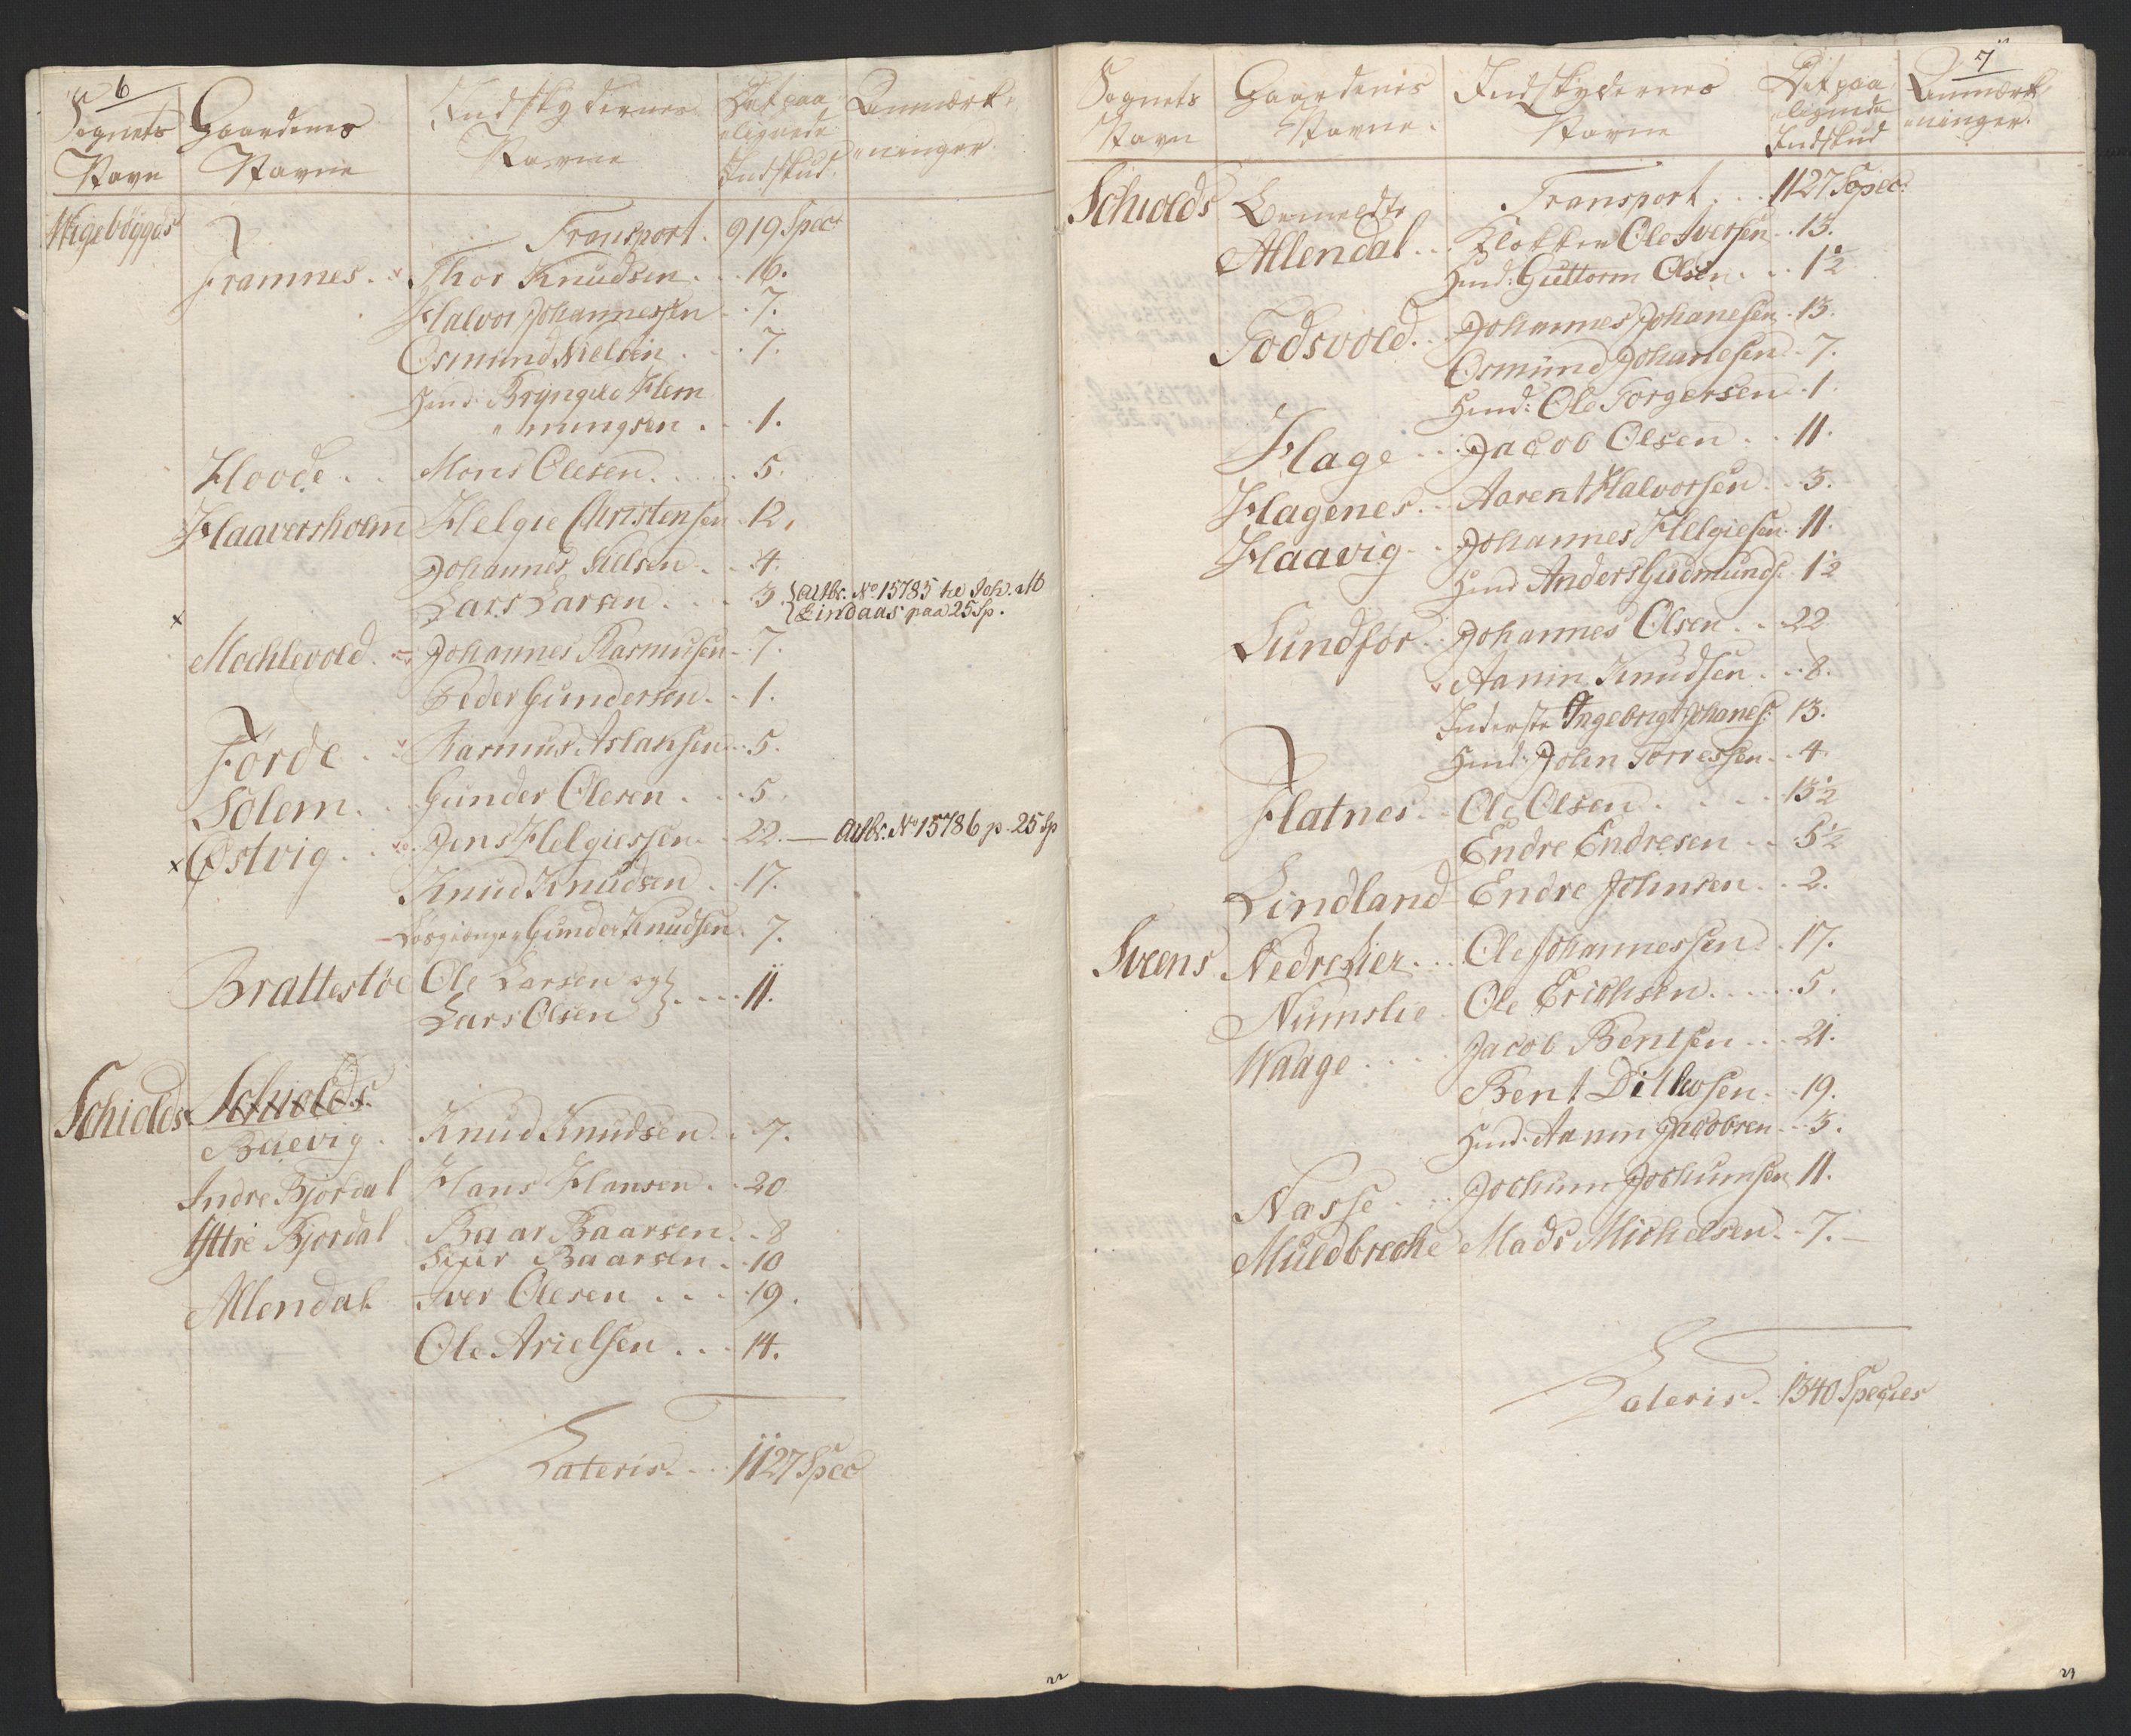 6
Sognets Navn | Gaardens Navne | Indskydernes Navne | Det paa lignede Indskud | Anmærkninger
Wigebøygds | Transport. 919 Spec
Framnes. Thor Knudsen. 16.
Halvor Johannessen 7.
Osmund Nielsen 7.
Huusmd: Bryngeld Flem
mingsen. 1.
Hovde. Mons Olesen. 5.
Haaversholm Helgie Christensen 12.
Johannes Nielsen 4.
Lars Larsen 3. Actbr. No 15785
Lindaas paa 25 Sp.
Mæhlevold. Johannes Rasmusen 7.
Peder Gundersen 1.
Førde. Rasmus Aslaksen 5.
Solem. Gunder Olesen. 5.
Østvig. Jens Helgiessen 22. — Actbr. No 15786 p. 25 Sp
Knud Knudsen 17.
Løsgienger Gunder Knudsen 7.
Brattestøe Ole Larsen og
Lars Olsen 11.
Schiolds Schiolds
Buevig. Knud Knudsen. 7.
Indre Bjordal Hans Hansen 20
Yttre Bjordal Baar Baarsen 8
Siur Baarsen 10
Allendal Iver Olesen 19.
Ole Arielsen 14.
Lateris. 1127 Spec
22
7
Sognets Navn | Gaardenes Navne. | Indskydernes Navne | Det paa lignende Indskud | Anmærkninger.
Schiolds Bemeldte Transport. 1127 Spec:
Allendal. Klokker Ole Iversen 13.
Huusmd: Guttorm Olsen. 1½
Todsvold. Johannes Johanesen 13.
Osmund Johanesen 7.
Huusmd: Ole Torgersen 1.
Hage Jacob Olsen 11.
Hagenes. Aarent Halvorsen 3.
Haavig Johannes Helgiesen 11.
Huusmd Anders Gudmunds: 1½
Sundfør. Johannes Olsen 22
Aanin Knudsen 8.
Inderste Ingebrigt Johanes: 13.
Huusmd: John Torressen 4.
Flatnes. Ole Olsen 13½
Endre Endresen 5½
Lindland Endre Johnsen. 2.
Sveens Nedre Lier Ole Johannessen 17.
Numslie Ole Erichsen. 5.
Waage Jacob Bentsen 21.
Bent Ditlevsen 19.
Huusmd: Aanun Jacobsen 3.
Næsse Jochum Jochumsen 11.
Muldbreche Mads Michelsen 7. —
Lateris. 1340 Species
23